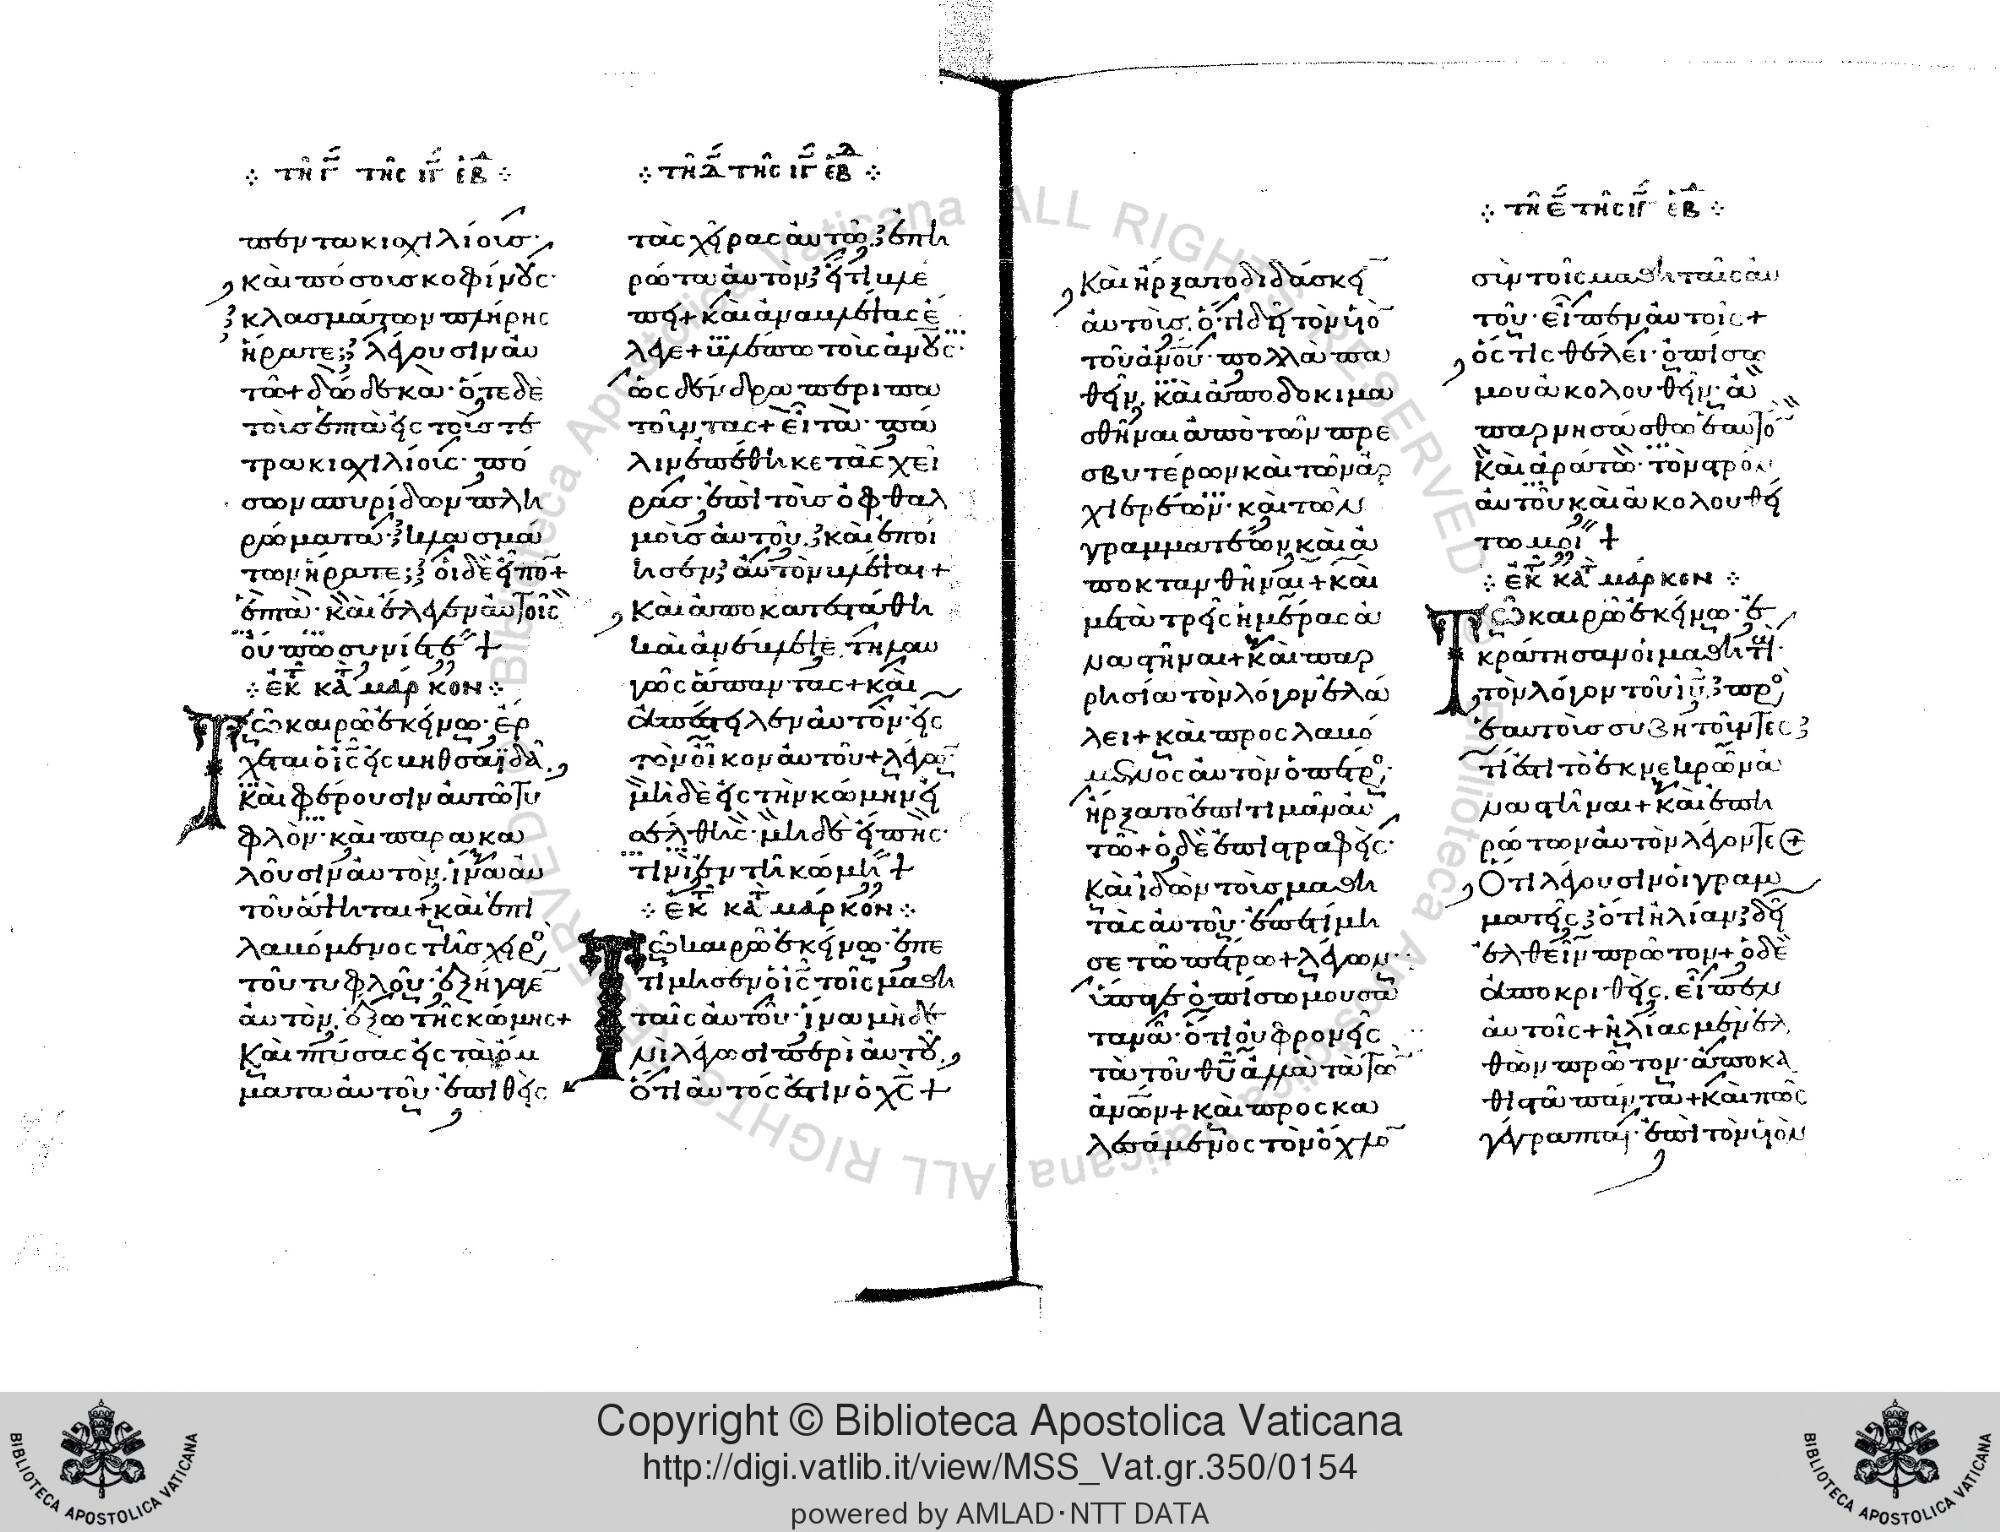 ⁘ τῆ γ̄ τῆς ιγ̄ ἑβδ ⁘
πεντακισχιλίους·
καὶ πόσους κοφίνους·
κλασμάτων πλήρης
ἤρατε; λέγουσιν αυ
τῶ+ δώδεκα· ὅτε δὲ
τοὺς ἑπτὰ εἰς τοὺς τε
τρακισχιλίους· πό
σων σπυρίδων πλη
ρώματα κλασμα
των ἤρατε; οἱ δὲ εἶπον+
ἑπτά· καὶ ἔλεγεν αὐτοῖς
οὔπω συνίετε +
⁘ ἐκ τ κατὰ μάρκον ⁘
Τῶ καιρῶ ἐκείνω· ἔρ
χεται ὁ ις εἰς βηθσαϊδὰ.
καὶ φέρουσιν αὐτῶ τυ
φλὸν· καὶ παρακα
λοῦσιν αὐτὸν, ἵνα αὐ
τοῦ ἅψηται+ καὶ ἐπι
λαβόμενος τῆς χειρὸς
τοῦ τυφλοῦ· ἐξήγαγεν
αὐτὸν, ἔξω τῆς κώμης+
Καὶ πτύσας εἰς τὰ ὄμ
ματα αὐτοῦ· ἐπιθεὶς
⁘ τῆ δ̄ τῆς ιγ̄ ἑβδ ⁘
τὰς χεῖρας αὐτῶ, ἐπη
ρώτα αὐτὸν εἴ τι βλέ
πει+ καὶ ἀναβλέψας ἔ
λεγε+ βλέπω τοὺς ἀνους·
ὡς δένδρα περιπα
τοῦντας+ εἶτα· πά
λιν ἐπέθηκε τὰς χεῖ
ρας· ἐπὶ τοὺς ὀφθαλ
μοὺς αὐτοῦ, καὶ ἐποί
ησεν αὐτὸν ἀναβλέψαι+
Καὶ ἀποκατεστάθη
καὶ ἀνέβλεψε, τηλαυ
γῶς ἅπαντας+ καὶ
ἀπέστειλεν αὐτὸν· εἰς
τὸν οἶκον αὐτοῦ+ λέγων
μηδὲ εἰς τὴν κώμην εἰ
σέλθης· μηδὲ εἴπης·
τινὶ ἐν τῆ κώμη +
⁘ ἐκ τ κατὰ μάρκον ⁘
Τῶ καιρῶ ἐκείνω· ἐπε
τίμησεν ὁ ις τοῖς μαθη
ταῖς αὐτοῦ· ἵνα μηδε
νὶ λέγωσι περὶ αὐτοῦ,
ὅτι αὐτός ἐστιν ὁ χς +
Καὶ ἤρξατο διδάσκειν
αὐτοὺς, ὅτι δεῖ τὸν υἱὸν
τοῦ ανου· πολλὰ πα
θεῖν, καὶ ἀποδοκιμα
σθῆναι ἀπὸ τῶν πρε
σβυτέρων καὶ τῶν ἀρ
χιερέων· καὶ τῶν
γραμματέων καὶ ἀ
ποκτανθῆναι+ καὶ
μετὰ τρεῖς ἡμέρας ἀ
ναστῆναι+ καὶ παρ
ρησία τὸν λόγον ἐλά
λει+ καὶ προςλαβό
μενος αὐτὸν ὁ πέτρος·
ἤρξατο ἐπιτιμᾶν αὐ
τῶ+ ὁ δὲ ἐπιστραφεὶς·
καὶ ἰδὼν τοὺς μαθη
τὰς αὐτοῦ· ἐπετίμη
σε τῶ πέτρω+ λέγων·
ὕπαγε ὀπίσω μου σα
τανᾶ· ὅτι οὐ φρονεῖς
τὰ τοῦ θυ ἀλλὰ τὰ τῶν
ανων+ καὶ προςκα
λεσάμενος τὸν ὄχλον
⁘ τῆ ε̄ τῆς ιγ̄ ἑβδ ⁘
σὺν τοῖς μαθηταῖς αὐ
τοῦ· εἶπεν αὐτοῖς+
ὅςτις θέλει· ὀπίσω
μου ἀκολουθεῖν· ἀ
παρνησάσθω ἑαυτὸν
καὶ ἀράτω· τὸν σταυρὸν
αὐτοῦ καὶ ἀκολουθεί
τω μοι +
⁘ ἐκ τ κατὰ μάρκον ⁘
Τῶ καιρῶ ἐκείνω· ἐ
κράτησαν οἱ μαθηταὶ·
τὸν λόγον τοῦ ιυ, πρὸς
ἑαυτοὺς συζητοῦντες
τί ἐστι τὸ ἐκ νεκρῶν ἀ
ναστῆναι+ καὶ ἐπη
ρώτων αὐτὸν λέγοντες+
Ὅτι λέγουσιν οἱ γραμ
ματεῖς, ὅτι ἠλίαν δεῖ
ἐλθεῖν πρῶτον+ ὁ δὲ
ἀποκριθεὶς, εἶπεν
αὐτοῖς+ ἠλίας μὲν ἐλ
θὼν πρῶτον· ἀποκα
θιστᾶ πάντα+ καὶ πῶς
γέγραπται· ἐπὶ τὸν υἱὸν
Copyright © Biblioteca Apostolica Vaticana
http://digi.vatlib.it/view/MSS_Vat.gr.350/0154
powered by AMLAD·NTT DATA
BIBLIOTECA APOSTOLICA VATICANA
BIBLIOTECA APOSTOLICA VATICANA
Biblioteca Apostolica Vaticana ALL RIGHTS RESERVED © Biblioteca Apostolica Vaticana ALL RIGHTS RESERVED ©